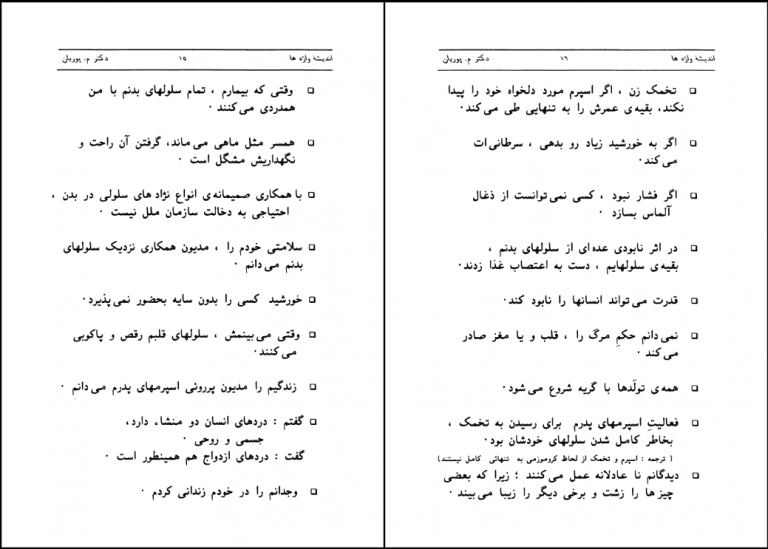 اندیشهٔ واژه ها ۱۵ دکتر م. پوریان
وقتی که بیمارم ، تمام سلولهای بدنم با من
همدردی می‌کنند .
همسر مثل ماهی می‌ماند، گرفتن آن راحت و
نگهداریش مشگل است .
با همکاری صمیمانه‌ی انواع نژاد های سلولی در بدن ،
احتیاجی به دخالت سازمان ملل نیست .
سلامتی خودم را ، مدیون همکاری نزدیک سلولهای
بدنم می‌دانم .
خورشید کسی را بدون سایه بحضور نمی‌پذیرد.
وقتی می‌بینمش ، سلولهای قلبم رقص و پاکوبی
می‌کنند.
زندگیم را مدیون پرروئی اسپرمهای پدرم می‌دانم .
گفتم : دردهای انسان دو منشاء دارد،
جسمی و روحی .
گفت : دردهای ازدواج هم همینطور است .
وجدانم را در خودم زندانی کردم .
اندیشهٔ واژه ها ۱۶ دکتر م. پوریان
تخمک زن ، اگر اسپرم مورد دلخواه خود را پیدا
نکند، بقیه‌ی عمرش را به تنهایی طی می‌کند .
اگر به خورشید زیاد رو بدهی ، سرطانی‌ات
می‌کند.
اگر فشار نبود ، کسی نمی‌توانست از ذغال
آلماس بسازد .
در اثر نابودی عده‌ای از سلولهای بدنم ،
بقیه‌ی سلولهایم ، دست به اعتصاب غذا زدند.
قدرت می‌تواند انسانها را نابود کند.
نمی‌دانم حکمِ مرگ را ، قلب و یا مغز صادر
می‌کند .
همه‌ی تولّدها با گریه شروع می‌شود.
فعالیتِ اسپرمهای پدرم برای رسیدن به تخمک ،
بخاطر کامل شدن سلولهای خودشان بود.
( ترجمه : اسپرم و تخمک از لحاظ کروموزمی به تنهائی کامل نیستند)
دیدگانم نا عادلانه عمل می‌کنند ؛ زیرا که بعضی
چیز ها را زشت و برخی دیگر را زیبا می‌بیند .